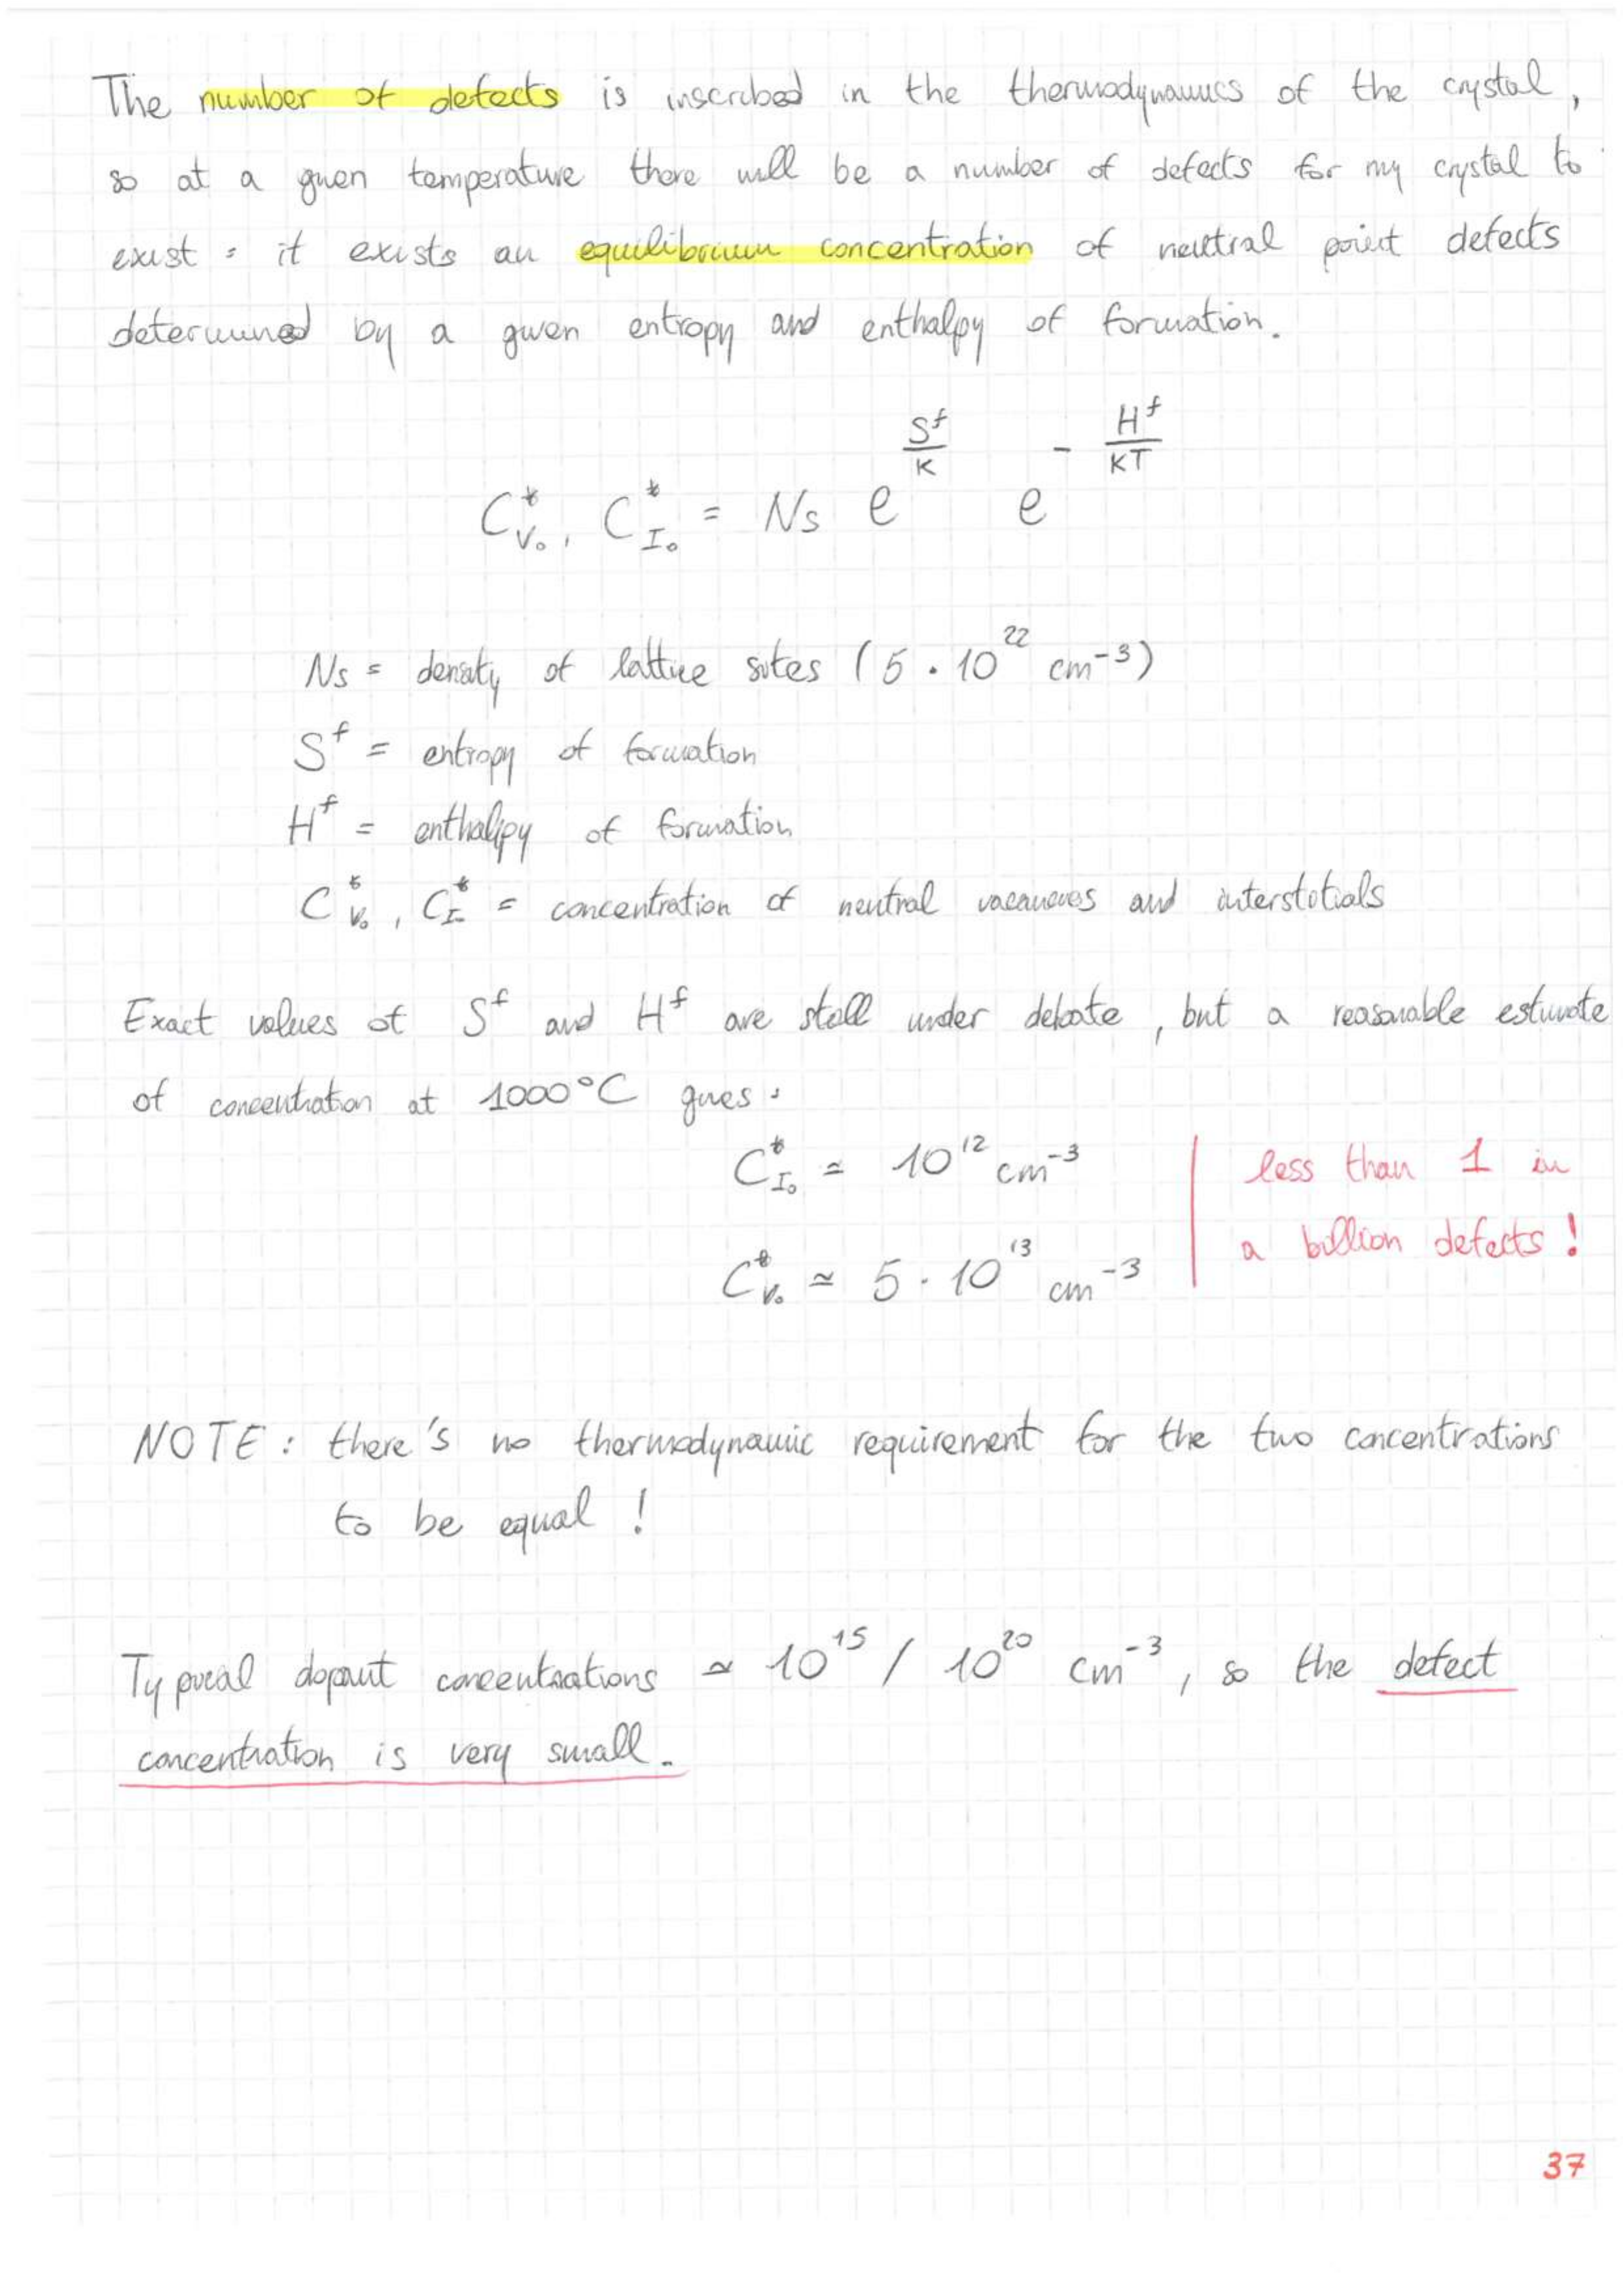 The number of defects is inscribed in the thermodynamics of the crystal,
so at a given temperature there will be a number of defects for my crystal to
exist : it exists an equilibrium concentration of neutral point defects
determined by a given entropy and enthalpy of formation.
C*_{V₀}, C*_{I₀} = Ns e^{S^f/K} e^{-H^f/KT}
Ns = density of lattice sites (5 · 10^22 cm^-3)
S^f = entropy of formation
H^f = enthalpy of formation
C*_{V₀}, C*_{I₀} = concentration of neutral vacancies and interstitials
Exact values of S^f and H^f are still under debate, but a reasonable estimate
of concentration at 1000°C gives :
C*_{I₀} ≃ 10^12 cm^-3
C*_{V₀} ≃ 5 · 10^13 cm^-3
less than 1 in
a billion defects !
NOTE : there's no thermodynamic requirement for the two concentrations
to be equal !
Typical dopant concentrations ≃ 10^15 / 10^20 cm^-3, so the defect
concentration is very small.
37